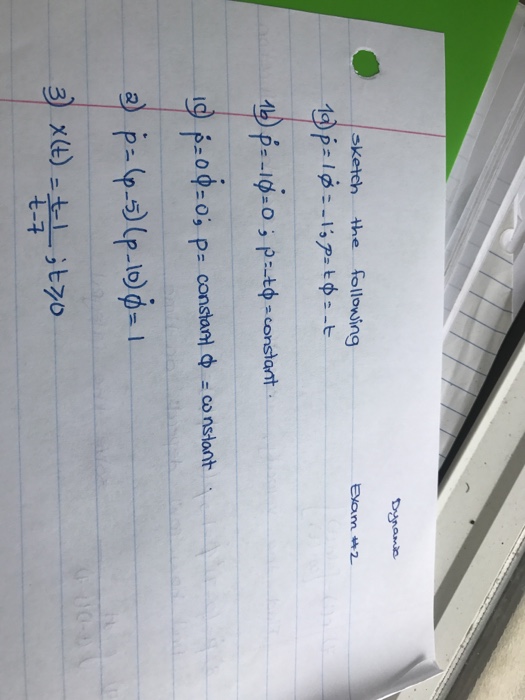 Dynamic
Exam #2
sketch the following
1a) ṗ=1 φ̇=-1; p=t φ=-t
1b) ṗ=-1 φ̇=0; p=-t φ=constant.
1c) ṗ=0 φ̇=0; p= constant φ = constant.
2) ṗ=(p-5)(p-10) φ̇=1
3) x(t) = t-1/t-7 ; t≥0